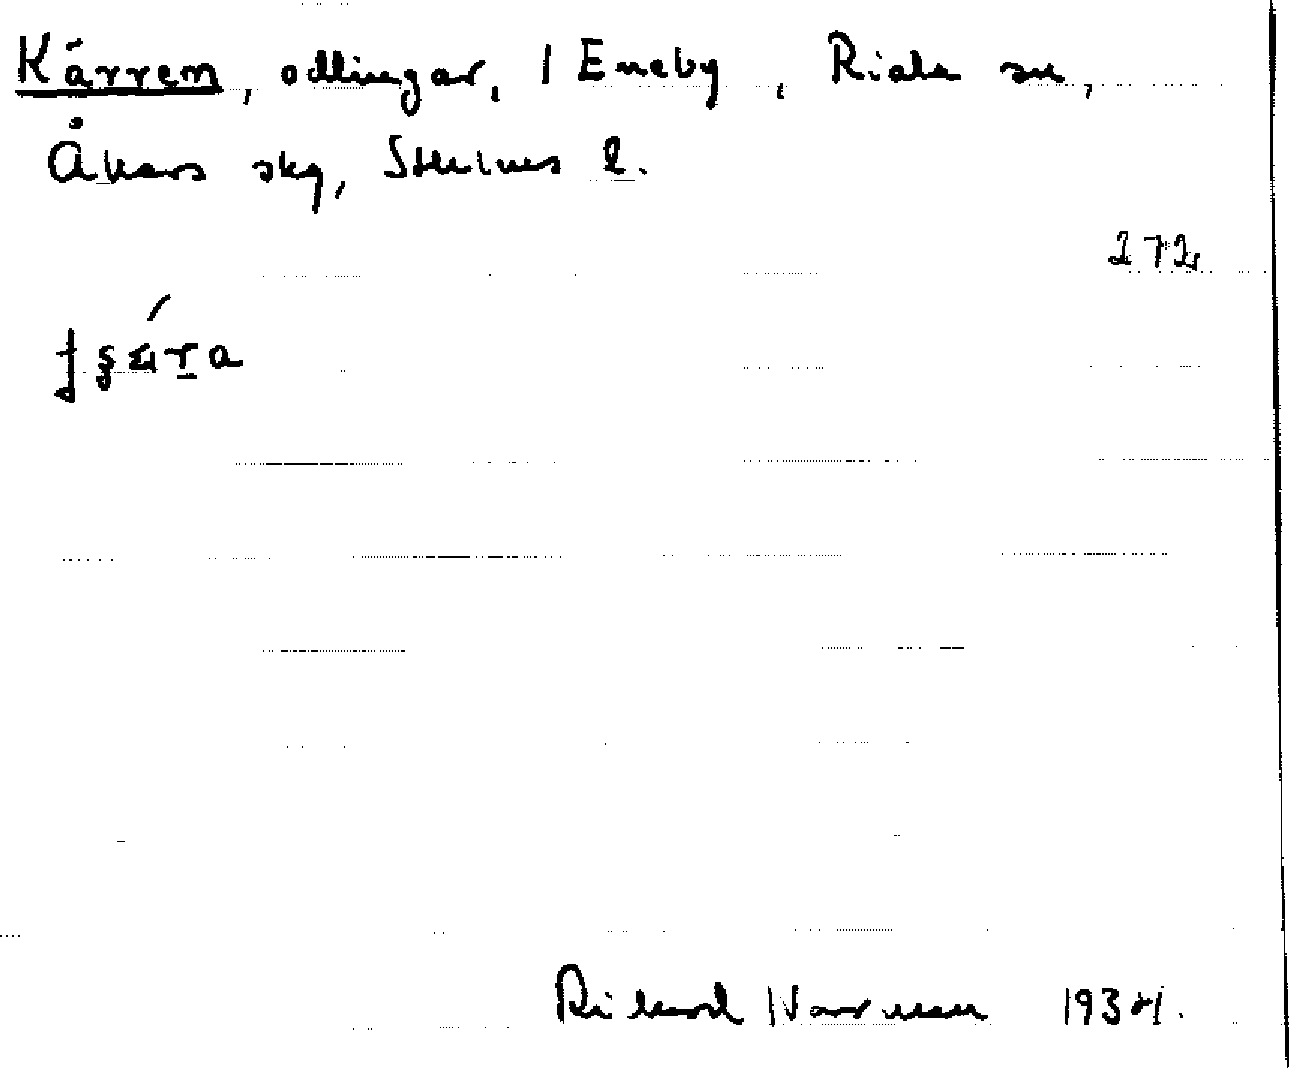 Kärren, odlingar, 1 Eneby, Riala sn,
Åkers skg, Sthlms l.
272
Rikard Norrman 1934.